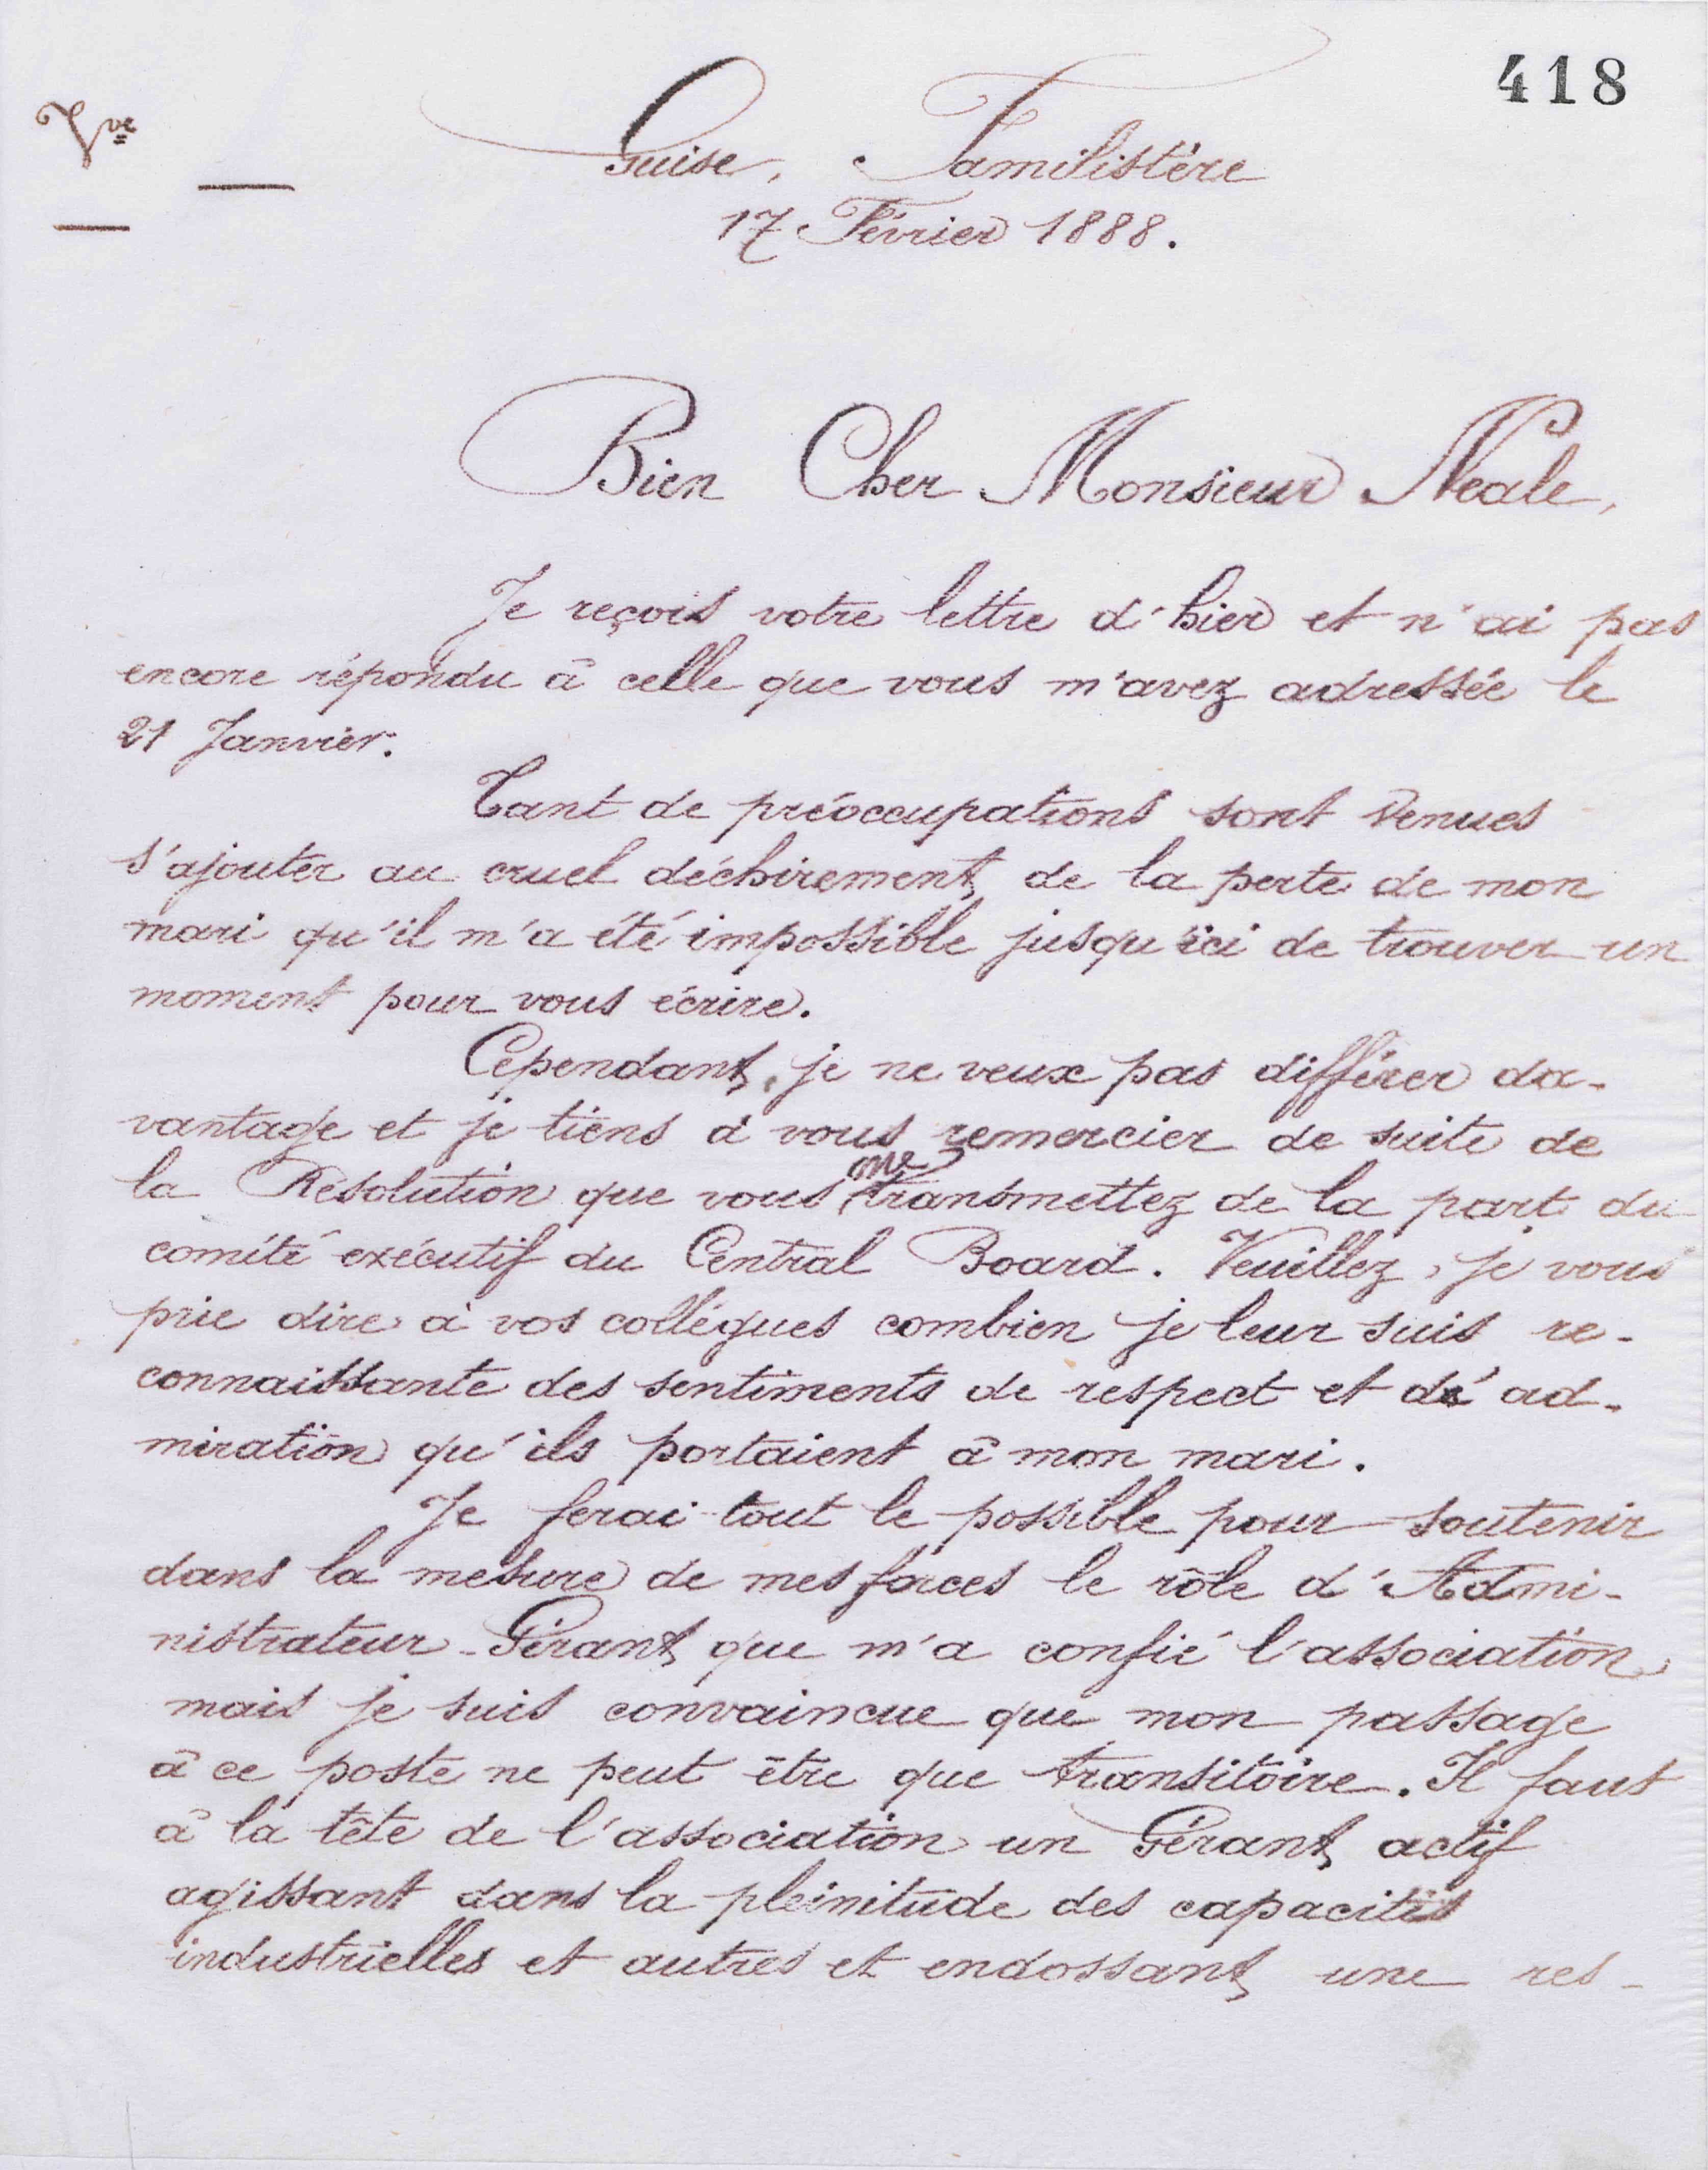 418
Vve
Guise, Familistère
17 Février 1888.
Bien Cher Monsieur Neale,
Je reçois votre lettre d'hier et n'ai pas
encore répondu à celle que vous m'avez adressée le
21 Janvier.
Tant de préoccupations sont venues
s'ajouter au cruel déchirement de la perte de mon
mari qu'il m'a été impossible jusqu'ici de trouver un
moment pour vous écrire.
Cependant, je ne veux pas différer da-
vantage et je tiens à vous remercier de suite de
la Résolution que vous me transmettez de la part du
comité exécutif du Central Board. Veuillez, je vous
prie dire à vos collègues combien je leur suis re-
connaissante des sentiments de respect et d'ad-
miration qu'ils portaient à mon mari.
Je ferai tout le possible pour soutenir
dans la mesure de mes forces le rôle d'Admi-
nistrateur-Gérant que m'a confié l'association
mais je suis convaincue que mon passage
à ce poste ne peut être que transitoire. Il faut
à la tête de l'association un Gérant actif
agissant dans la pleinitude des capacités
industrielles et autres et endossant une res-